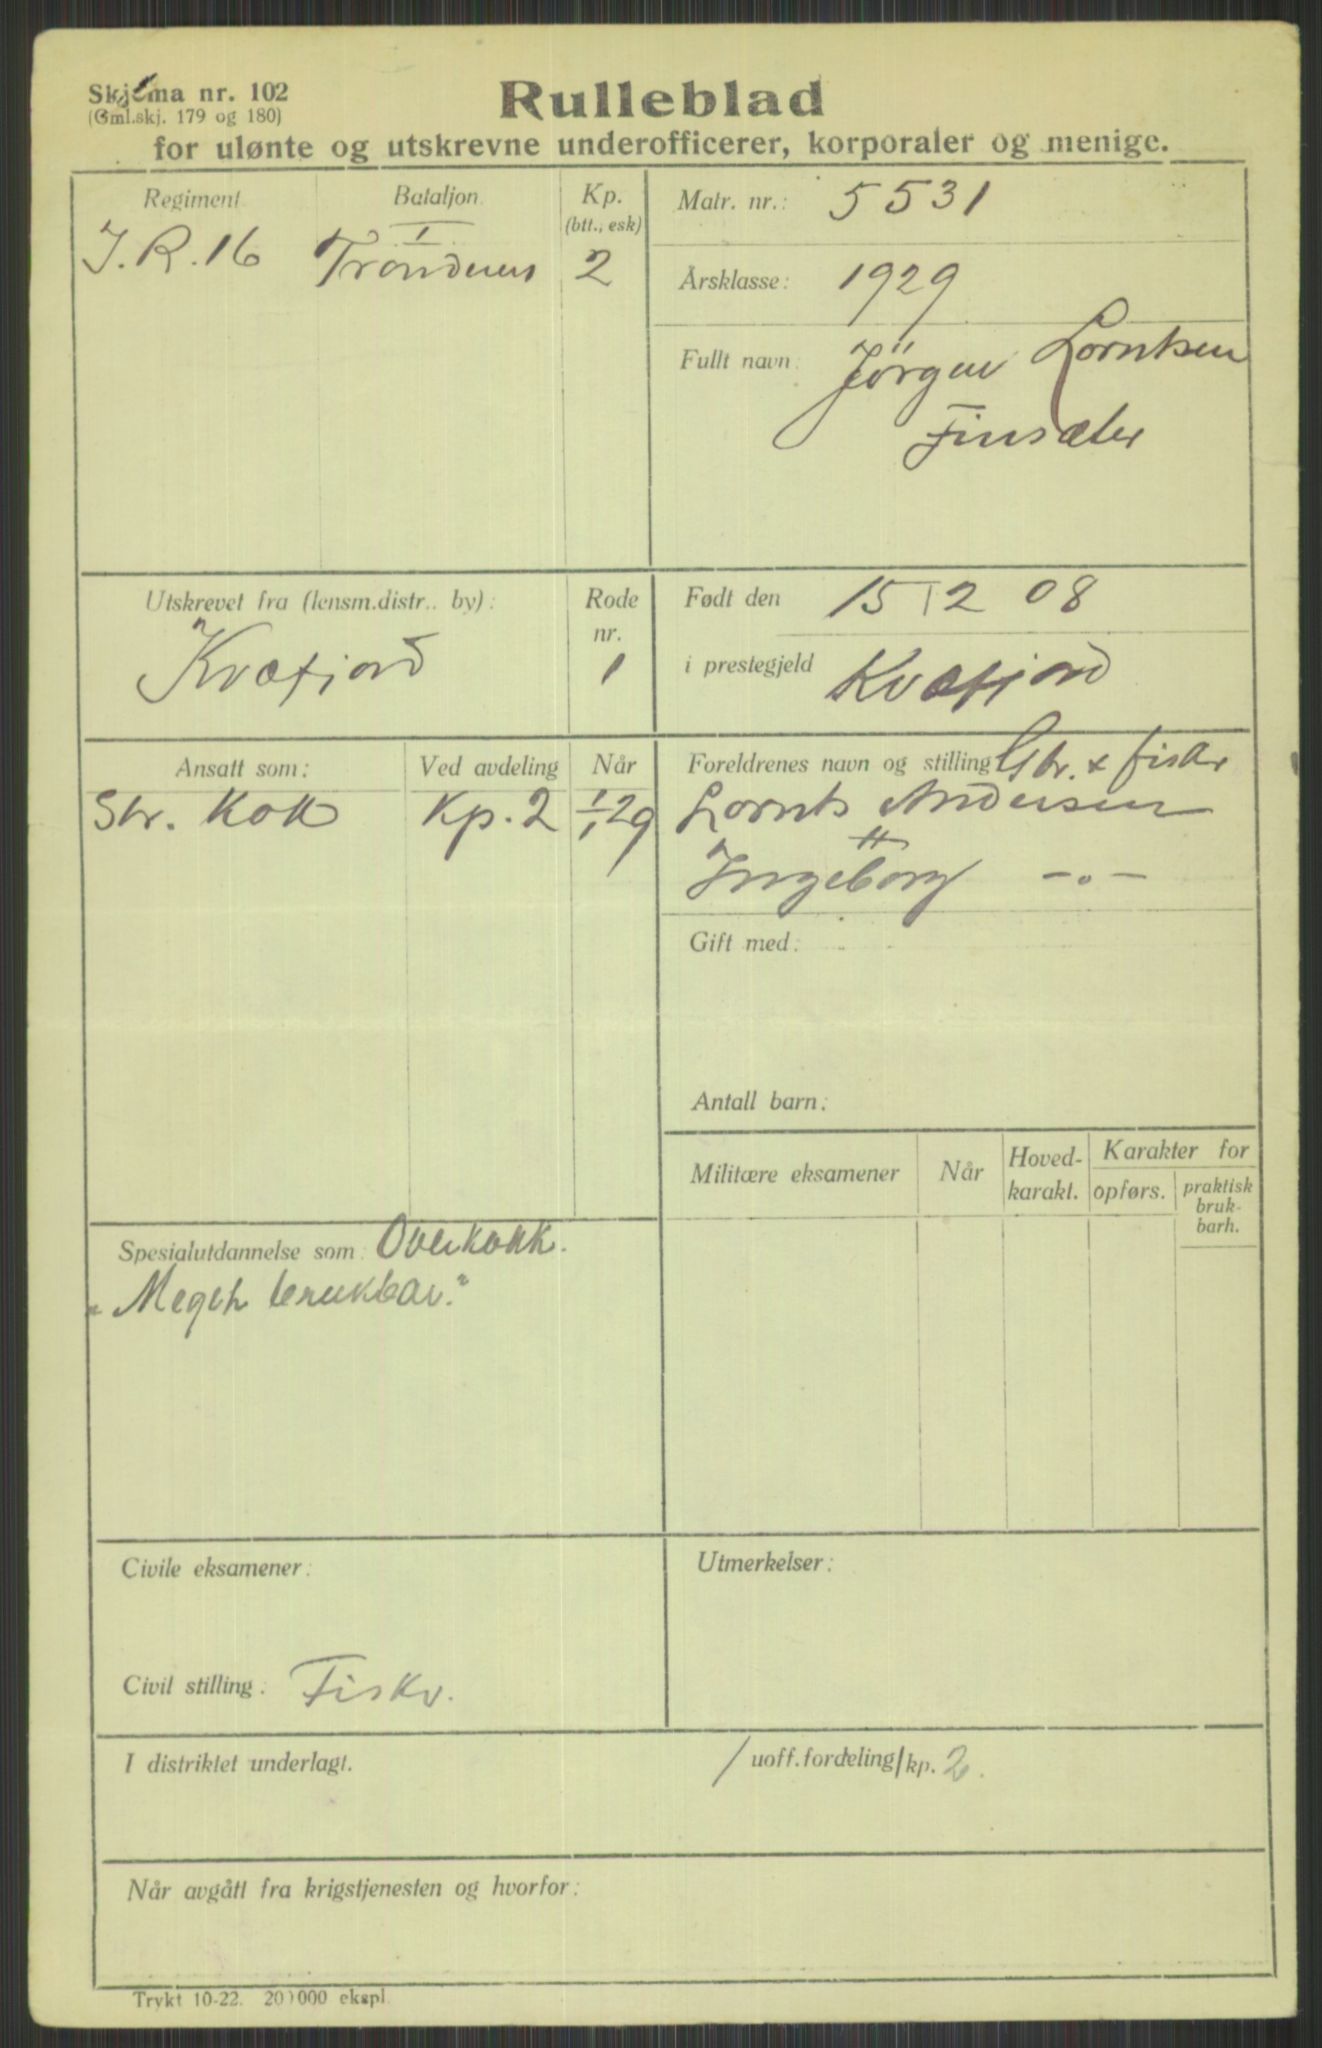 Skjema nr. 102
(Gml.skj. 179 og 180)
Rulleblad
for ulønte og utskrevne underofficerer, korporaler og menige.
Regiment Bataljon Kp. (btt., esk)
I
J.R.16 Trondenes 2
Matr. nr.: 5531
Årsklasse: 1929
Fullt navn: Jörgen Lorntsen
Finsæter
Utskrevet fra (lensm.distr.. by): Rode nr.
Kvæfjord 1
Født den 15/12 08
i prestegjeld Kvæfjord
Ansatt som: Ved avdeling Når
Str. Kok Kp. 2 1/1 29
Foreldrenes navn og stilling Gbr. & fisker
Lornts Andersen
Ingeborg -"-
Gift med:
Antall barn:
Militære eksamener Når Hoved-karakt. Karakter for
opførs. praktisk bruk-barh.
Spesialutdannelse som: Overkokk.
"Meget brukbar."
Civile eksamener:
Civil stilling: Fiskr.
Utmerkelser:
I distriktet underlagt. / uoff.fordeling/kp. 2.
Når avgått fra krigstjenesten og hvorfor:
Trykt 10-22. 200000 ekspl.